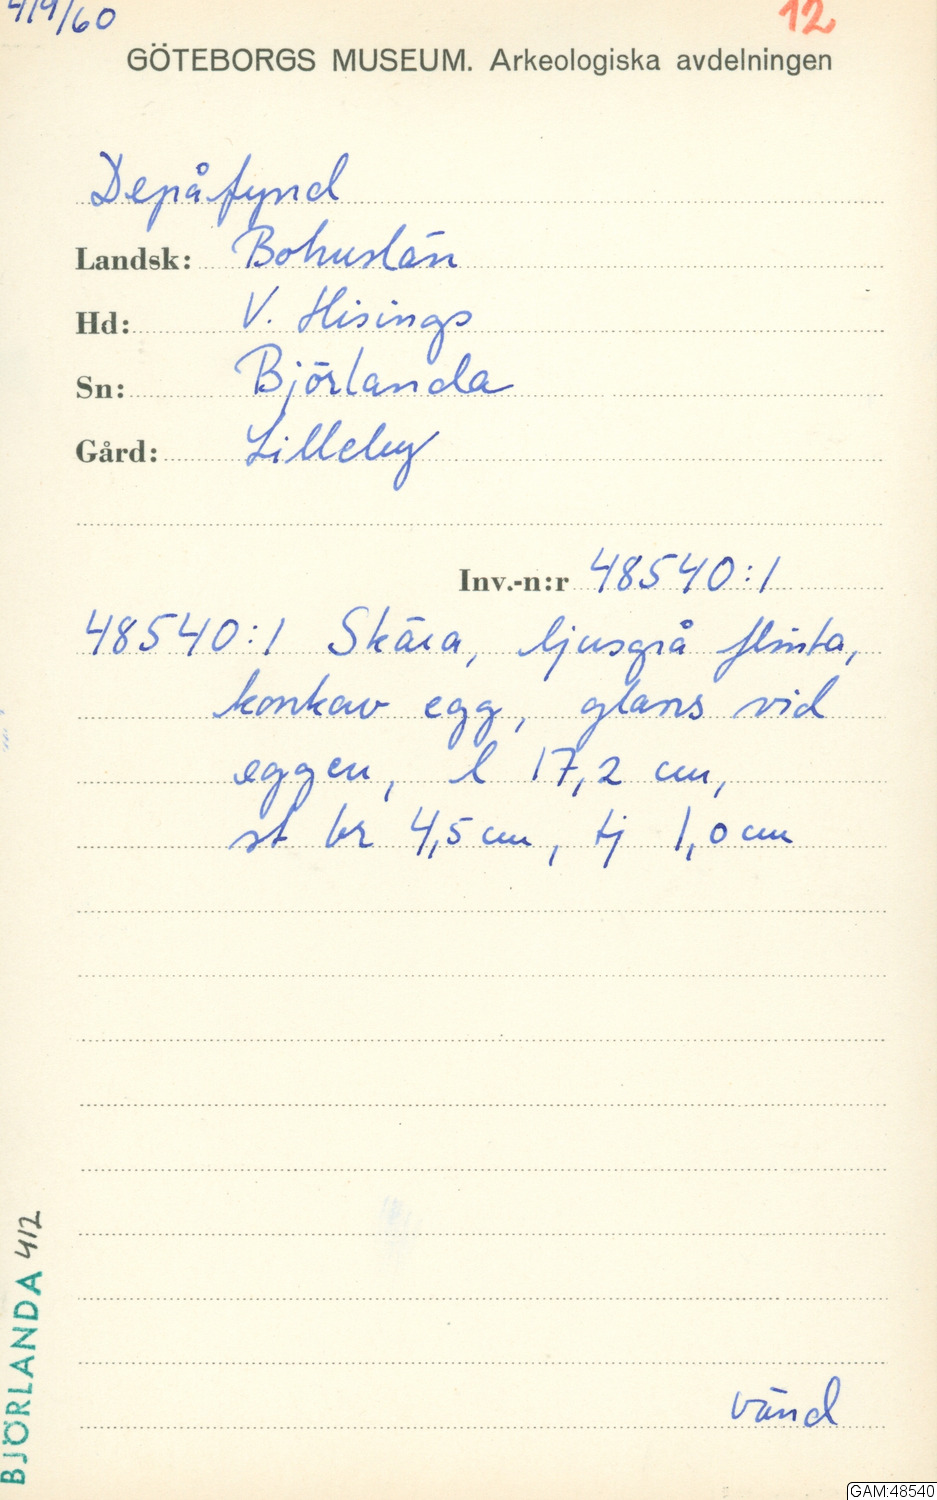 419/60
12
GÖTEBORGS MUSEUM. Arkeologiska avdelningen
Depåfynd
Landsk: Bohuslän
Hd: V. Hisings
Sn: Björlanda
Gård: Lilleby
Inv.-n:r 48540:1
48540:1 Skära, ljusgrå flinta,
konkav egg, glans vid
eggen, l 17,2 cm,
st br 4,5 cm, tj 1,0 cm
BJÖRLANDA 412
vänd
GAM:48540